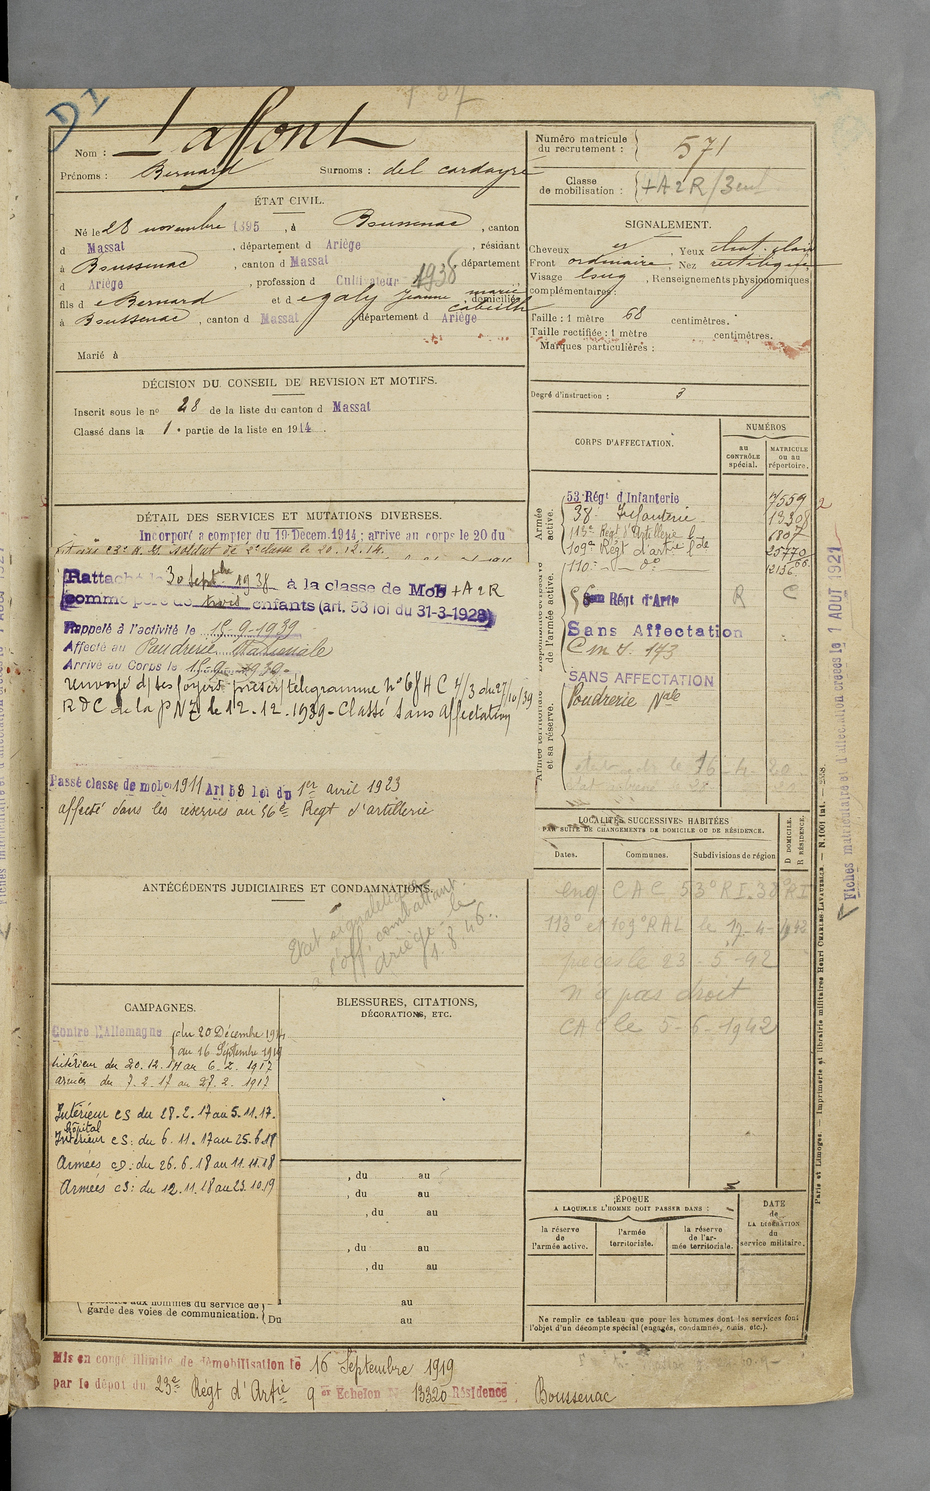 D1
Nom : Laffont
Prénoms : Bernard Surnoms : del cardayre
Numéro matricule du recrutement : 571
Classe de mobilisation : +A2R/3enf
ÉTAT CIVIL.
Né le 28 novembre 1895, à Boussenac, canton
d Massat, département d Ariège, résidant
à Boussenac, canton d Massat, département
d Ariège, profession d Cultivateur 1938
fils d e Bernard et d egaly Jeanne marie, domiciliés
à Boussenac, canton d Massat, département d Ariège
Marié à
SIGNALEMENT.
Cheveux Yeux
Front ordinaire, Nez
Visage long, Renseignements physionomiques
complémentaires :
Taille : 1 mètre 68 centimètres.
Taille rectifiée : 1 mètre centimètres.
Marques particulières :
Degré d'instruction : 3
DÉCISION DU CONSEIL DE REVISION ET MOTIFS.
Inscrit sous le no 28 de la liste du canton d Massat
Classé dans la 1e partie de la liste en 1914.
DÉTAIL DES SERVICES ET MUTATIONS DIVERSES.
Incorporé a compter du 19 Décem. 1914; arrive au corps le 20 du
soldat de 2e classe le 20.12.14.
Rattaché le 30 septbre 1938 à la classe de Mob +A2R
comme père de trois enfants (art. 58 loi du 31-3-1928)
Rappelé à l'activité le 15-9-1939
Affecté au Poudrerie Nationale
Arrivé au Corps le 15-9-1939-
renvoyé d/ses foyers prescrip télégramme no 684 C 4/3 du 27/10/39
RDC de la PNZ le 12.12.1939-Classé sans affectation
Passé classe de mobon 1911 Art 58 loi du 1er avril 1923
affecté dans les réserves au 56e Régt d'artillerie
CORPS D'AFFECTATION.
NUMÉROS
au CONTRÔLE spécial.
MATRICULE ou au répertoire.
Armée active.
53e Régt d'Infanterie 7559
38e Infanterie 13308
113e Régt d'Artillerie l 6807
109e Régt d'artie lde 25770
110e do
de l'armée active.
56em Régt d'Artie R C
Sans Affectation
C m d. 173
SANS AFFECTATION
Armée territoriale et sa réserve.
Poudrerie Nale
16-4-20
LOCALITÉS SUCCESSIVES HABITÉES
PAR SUITE DE CHANGEMENTS DE DOMICILE OU DE RÉSIDENCE.
Dates.
Communes.
Subdivisions de région
D DOMICILE.
R RÉSIDENCE.
enq CAC 53e RI. 38e RI
113e et 109e RAL le 17-4-1942
pièces le 23-5-42
n'a pas droit
CAC le 5-6 1942
ANTÉCÉDENTS JUDICIAIRES ET CONDAMNATIONS.
Etat signalétique
à l'off. combattant
ariège - le
1.8.46.
CAMPAGNES.
Contre l'Allemagne du 20 Décembre 1914
au 16 Septembre 1919
Intérieur du 20.12.14 au 6.2.1917
armées du 7.2.17 au 27.2.1917
Intérieur CS du 28.2.17 au 5.11.17.
Hôpital
Intérieur CS: du 6.11.17 au 25.6.18
Armées CD: du 26.6.18 au 11.11.18
Armées CS: du 12.11.18 au 23.10.19
BLESSURES, CITATIONS,
DÉCORATIONS, ETC.
, du au
, du au
, du au
, du au
, du au
aux hommes du service de
garde des voies de communication.
au
Du au
ÉPOQUE
A LAQUELLE L'HOMME DOIT PASSER DANS :
la réserve de l'armée active.
l'armée territoriale.
la réserve de l'armée territoriale.
DATE de LA LIBÉRATION du service militaire.
Ne remplir ce tableau que pour les hommes dont les services font
l'objet d'un décompte spécial (engagés, condamnés, omis, etc.).
Mis en congé illimité de démobilisation le 16 Septembre 1919
par le dépôt du 23e Régt d'Artie 9e Echelon No 13320 Résidence Boussenac
Paris et Limoges. — Imprimerie et librairie militaires Henri CHARLES-LAVAUZELLE. — N. 1001 int. — 258.
Fiches matriculaire et d'affectation créées le 1 AOUT 1921